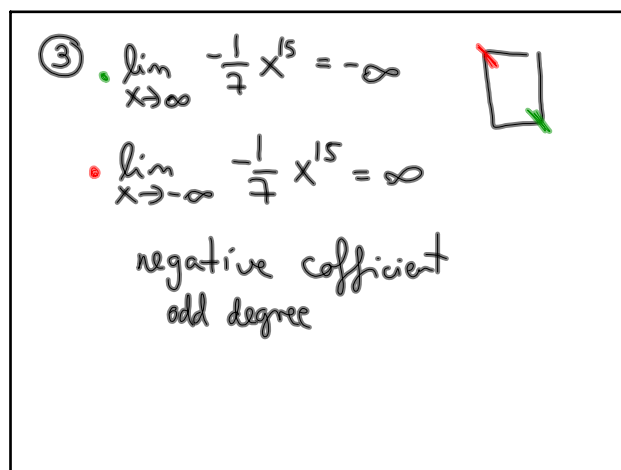 ③ lim x→∞ -1/7 x^15 = -∞
lim x→-∞ -1/7 x^15 = ∞
negative cofficient
odd degree